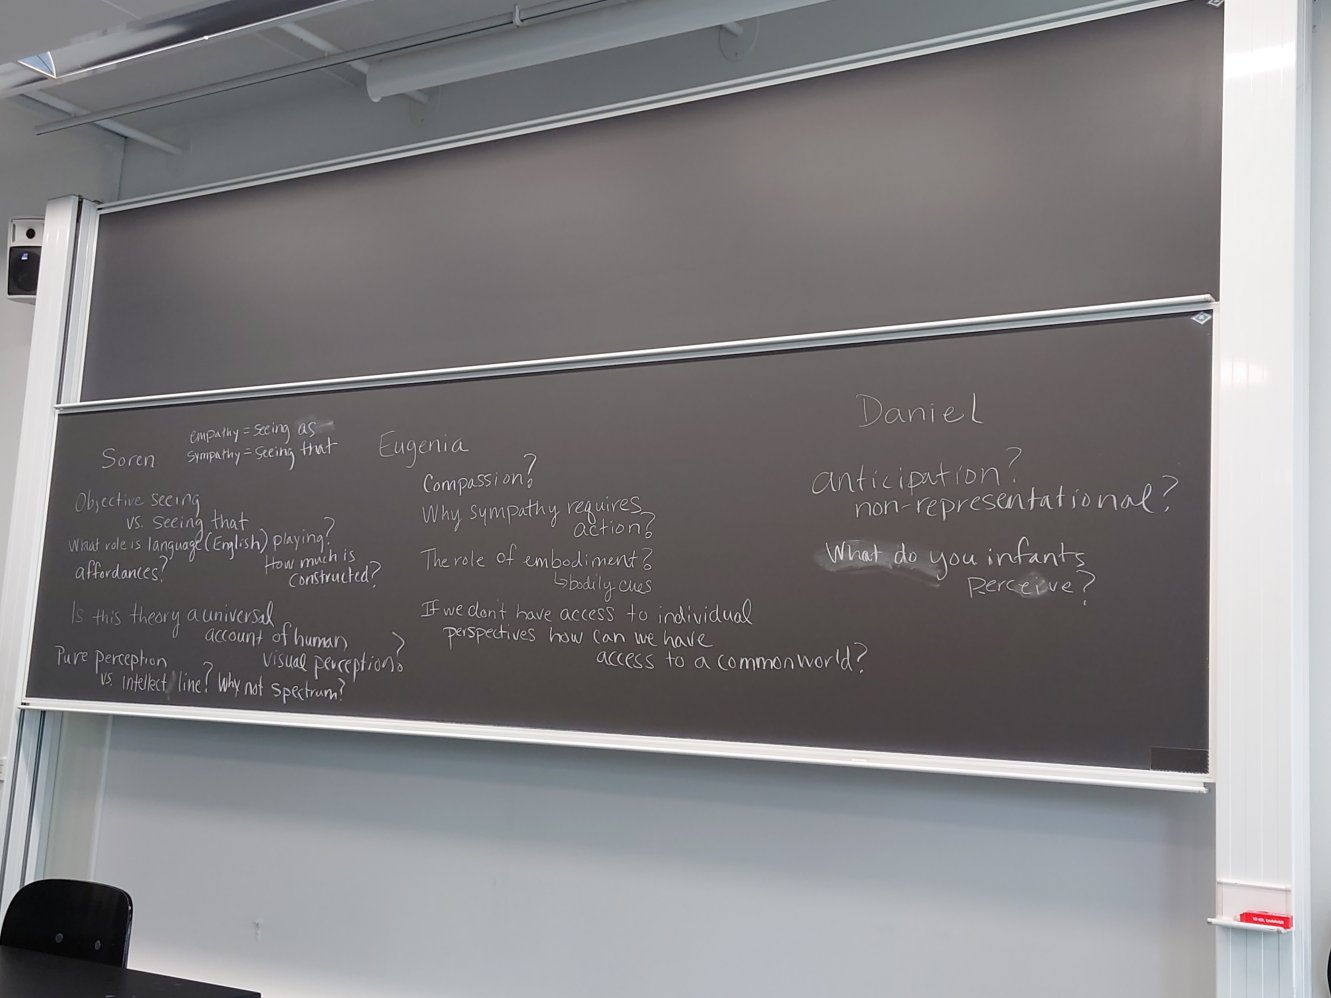 Soren
empathy = seeing as
sympathy = seeing that
Objective seeing
vs. seeing that
What role is language (English) playing?
affordances?
How much is
constructed?
Is this theory a universal
account of human
visual perception?
Pure perception
vs. intellect line? Why not spectrum?
Eugenia
Compassion?
Why sympathy requires
action?
The role of embodiment?
↳ bodily cues
If we don't have access to individual
perspectives how can we have
access to a common world?
Daniel
anticipation?
non-representational?
What do you infants
perceive?